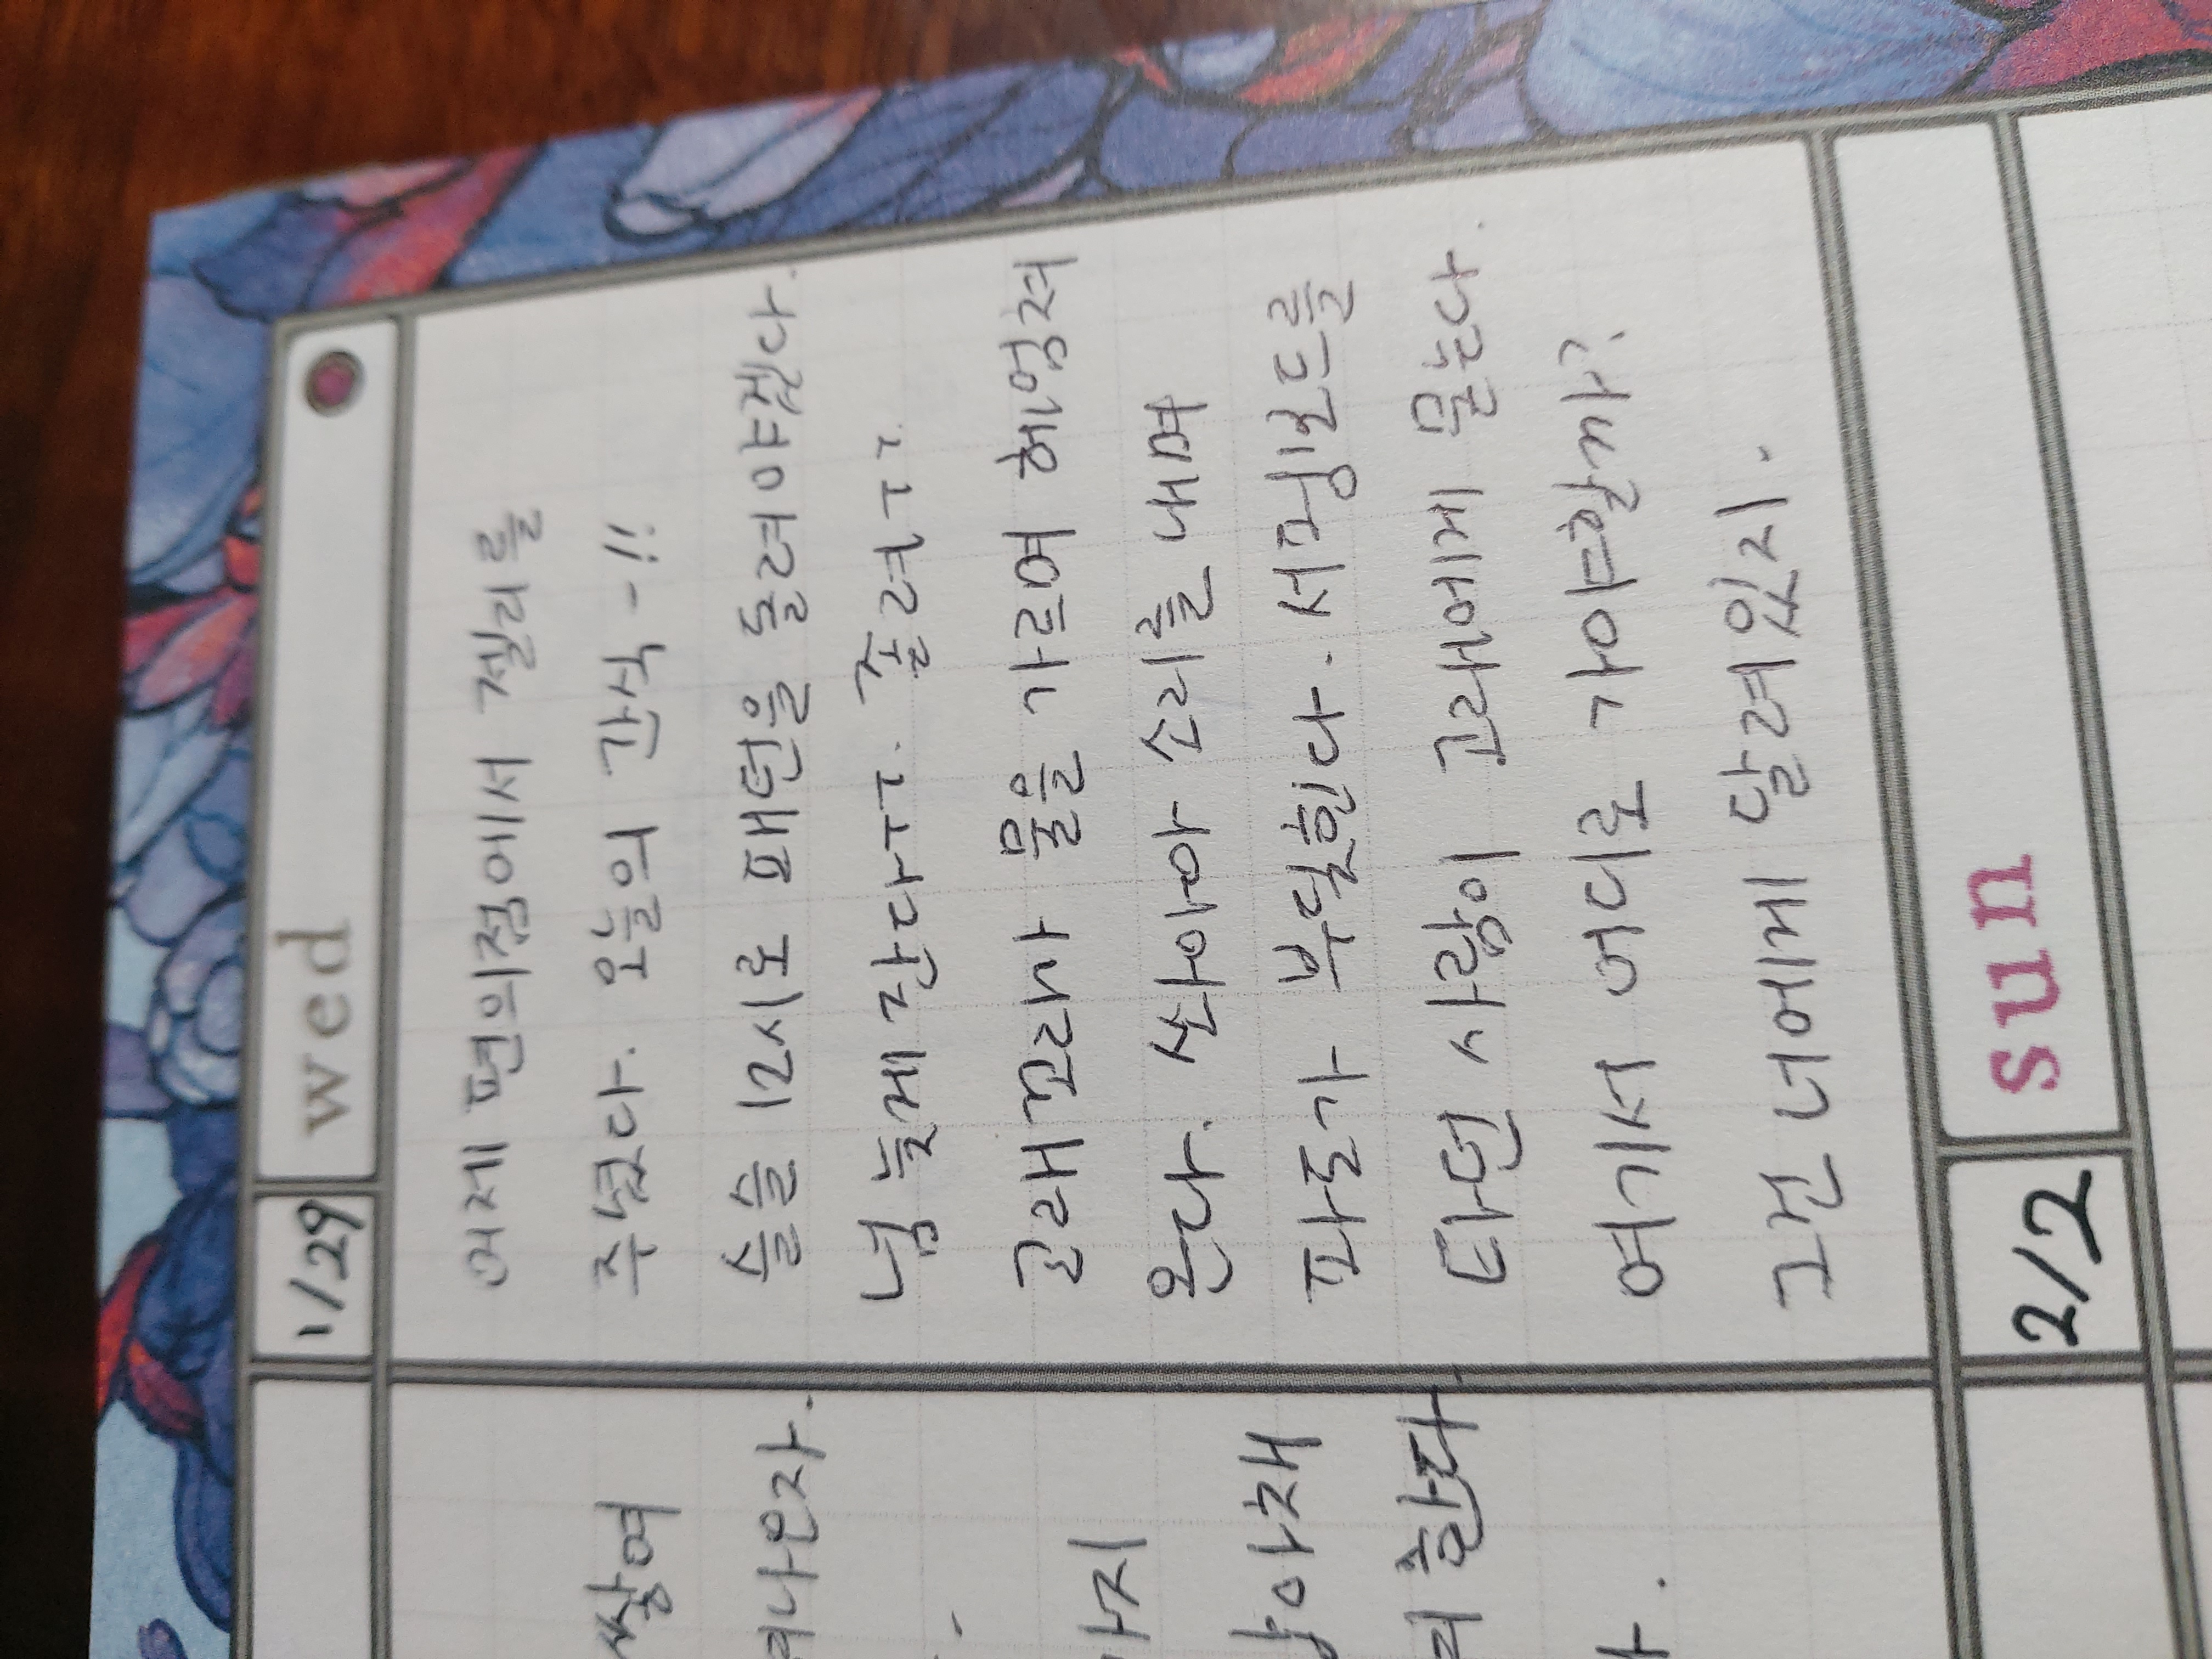 1/29 wed
어제 편의점에서 젤리를
주웠다. 오늘의 간식-!!
슬슬 12시로 패턴을 돌려야겠다.
넘 늦게 잔다ㅜㅜ. 졸려ㅜㅜ
고래꼬리가 물을 가르며 헤엄쳐
온다. 쏴아아 소리를 내며
파도가 부딪힌다. 서핑보드를
타던 사람이 고래에게 묻는다.
여기서 어디로 가야할까?
그건 너에게 달려있지.
쌓여
나온자.
한다.
2/2 sun